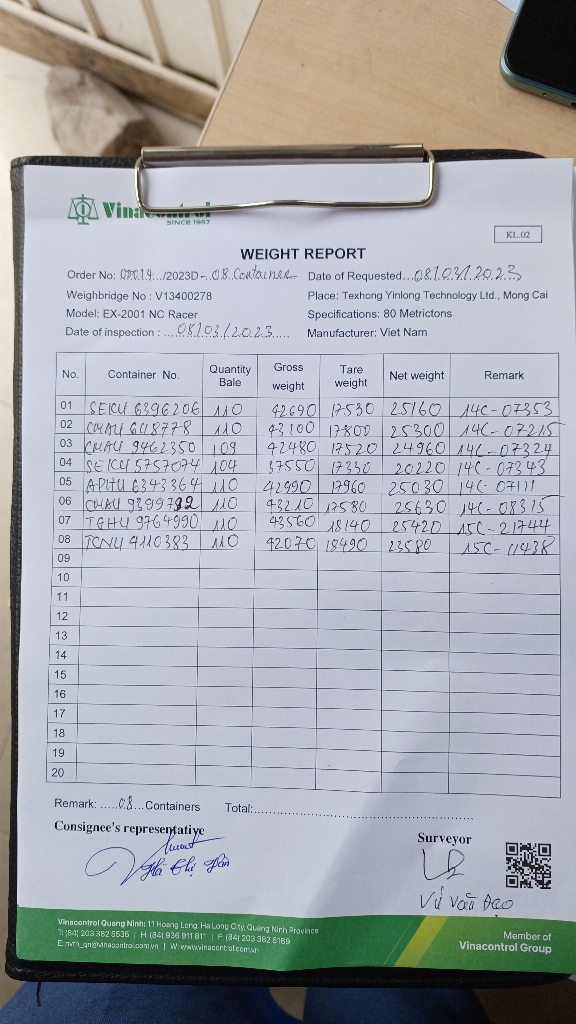 Vinacontrol
SINCE 1957
KL.02
WEIGHT REPORT
Order No: /2023D - 08 Container Date of Requested 08/03/2023
Weighbridge No : V13400278 Place: Texhong Yinlong Technology Ltd., Mong Cai
Model: EX-2001 NC Racer Specifications: 80 Metrictons
Date of inspection : 08/03/2023 Manufacturer: Viet Nam
No. Container No. Quantity Bale Gross weight Tare weight Net weight Remark
01 SEKU 6396206 110 42690 17530 25160 14C-07353
02 CMAU 110 43100 17800 25300 14C-07215
03 CMAU 9462350 109 42480 17520 24960 14C-07324
04 SEKU 5757074 104 37550 17330 20220 14C-07343
05 APHU 6343364 110 42990 17960 25030 14C-07111
06 CMAU 110 43210 17580 25630 14C-08315
07 TGHU 9764990 110 43560 18140 25420 15C-21744
08 TCNU 4110383 110 42070 18490 23580 15C-11438
09
10
11
12
13
14
15
16
17
18
19
20
Remark: .....08...Containers Total:
Consignee's representative Surveyor
Vũ Văn Đạo
Vinacontrol Quang Ninh: 11 Hoang Long, Ha Long City, Quang Ninh Province
T: (84) 203 382 5535 | H: (84) 936 911 811 | F: (84) 203 382 6169
E: nvth_qn@vinacontrol.com.vn | W: www.vinacontrol.com.vn
Member of
Vinacontrol Group